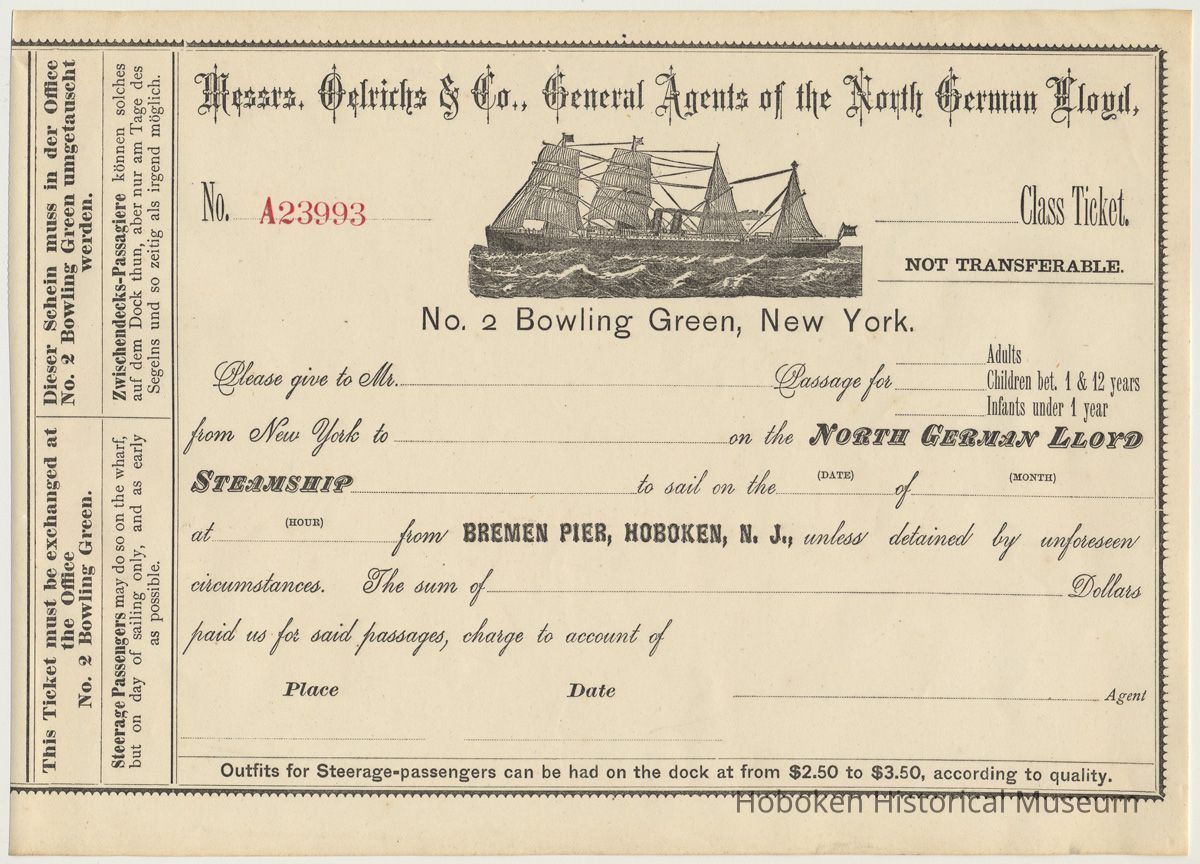 Messrs. Oelrichs & Co., General Agents of the North German Lloyd,
No. A23993
Class Ticket.
NOT TRANSFERABLE.
No. 2 Bowling Green, New York.
Please give to Mr. Passage for
Adults
Children bet. 1 & 12 years
Infants under 1 year
from New York to on the NORTH GERMAN LLOYD
STEAMSHIP to sail on the (DATE) of (MONTH)
at (HOUR) from BREMEN PIER, HOBOKEN, N. J., unless detained by unforeseen
circumstances. The sum of Dollars
paid us for said passages, charge to account of
Place Date Agent
Outfits for Steerage-passengers can be had on the dock at from $2.50 to $3.50, according to quality.
Dieser Schein muss in der Office
No. 2 Bowling Green umgetauscht
werden.
Zwischendecks-Passagiere können solches
auf dem Dock thun, aber nur am Tage des
Segelns und so zeitig als irgend möglich.
This Ticket must be exchanged at
the Office
No. 2 Bowling Green.
Steerage Passengers may do so on the wharf,
but on day of sailing only, and as early
as possible.
Hoboken Historical Museum